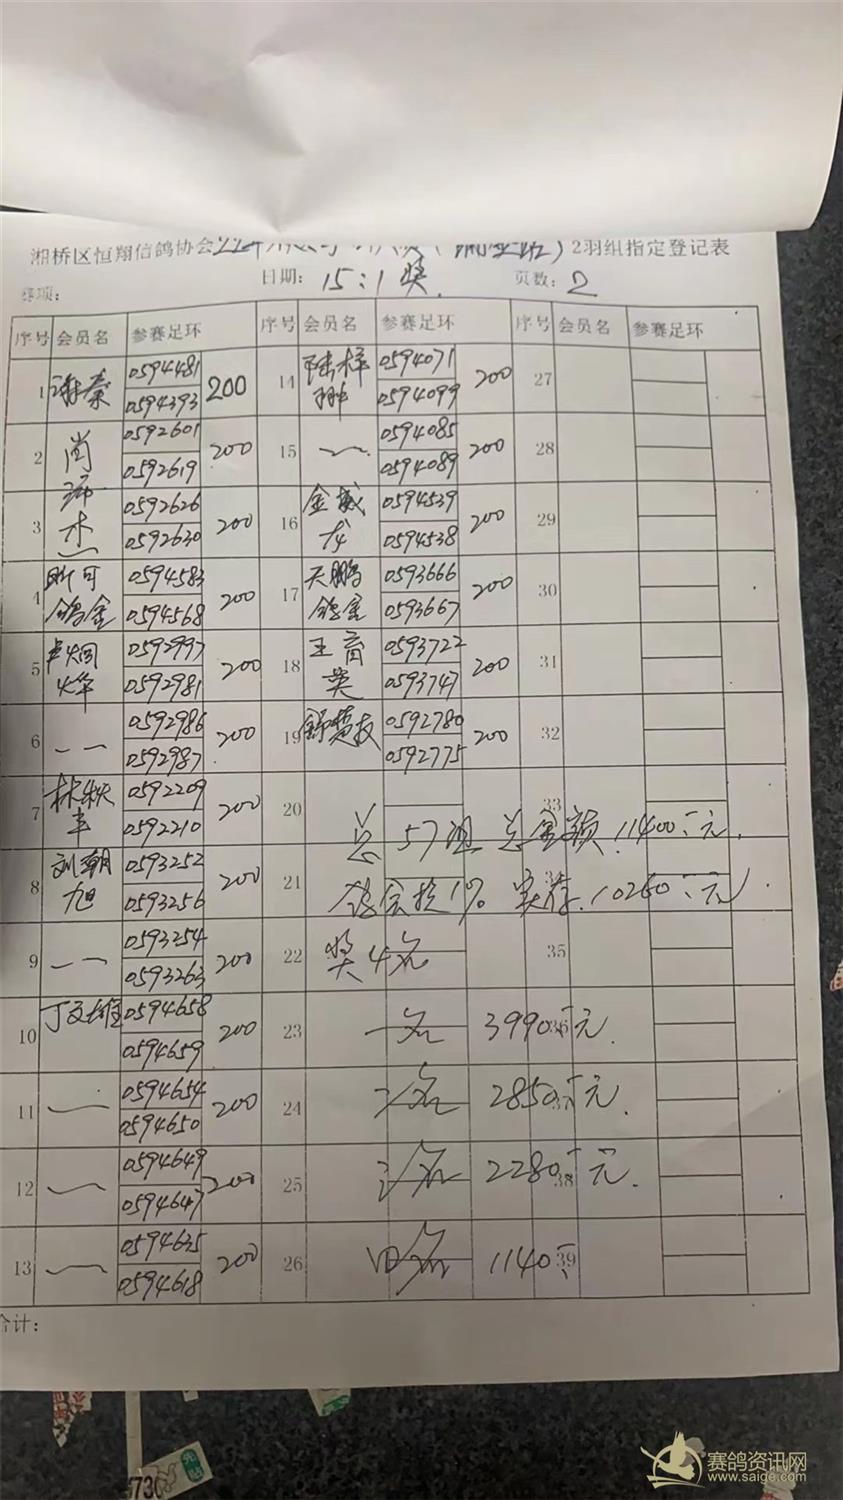 湘桥区恒翔信鸽协会 2羽组指定登记表
赛项： 日期：15:1奖. 页数：2
序号 会员名 参赛足环 序号 会员名 参赛足环 序号 会员名 参赛足环
1 谢泰 0594481 0594393 200
2 0592601 0592619 200
3 0592626 0592630 200
4 鸽舍 0594583 0594568 200
5 0592997 0592981 200
6 一一 0592986 0592987 200
7 林秋丰 0592209 0592210 200
8 刘朝旭 0593252 0593256 200
9 一一 0593254 0593263 200
10 丁文雄 0594658 0594659 200
11 0594654 0594650 200
12 0594649 0594647 200
13 0594635 0594618 200
14 0594071 0594099 200
15 0594085 0594089 200
16 金威龙 0594539 0594538 200
17 天鹏鸽舍 0593666 0593667 200
18 王育英 0593722 0593747 200
19 0592780 0592775 200
20 总57组 总金额:11400元.
21 实存.10260元.
22 奖4名
23 一名 3990元.
24 二名 2850元.
25 三名 2280元.
26 四名 1140
27
28
29
30
31
32
33
35
36
37
38
39
合计：
730
赛鸽资讯网
www.saige.com